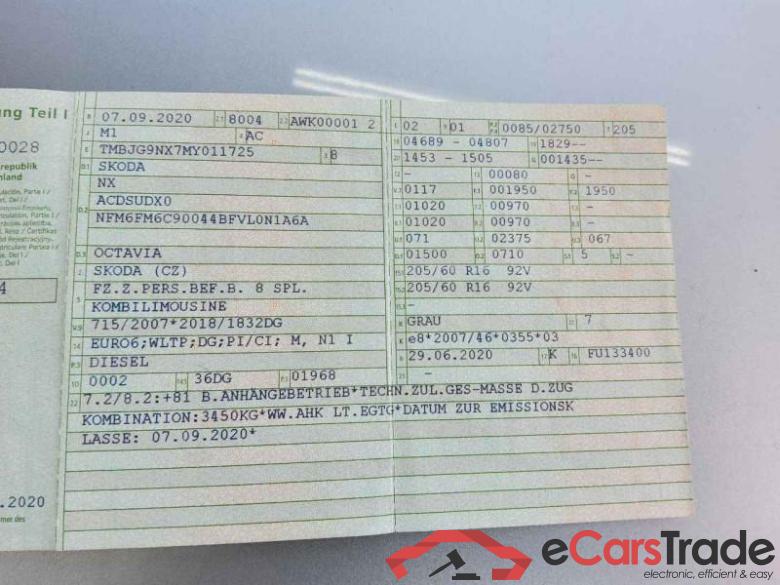 ung Teil I
0028
republik
nland
4
.2020
B 07.09.2020 2.1 8004 2.2 AWK00001 2
J M1 4 AC
E TMBJG9NX7MY011725 3 8
D.1 SKODA
NX
D.2 ACDSUDX0
NFM6FM6C90044BFVL0N1A6A
D.3 OCTAVIA
2 SKODA (CZ)
5 FZ.Z.PERS.BEF.B. 8 SPL.
KOMBILIMOUSINE
V.9 715/2007*2018/1832DG
14 EURO6;WLTP;DG;PI/CI; M, N1 I
P.3 DIESEL
10 0002 14.1 36DG P.1 01968
22 7.2/8.2:+81 B.ANHÄNGEBETRIEB*TECHN.ZUL.GES-MASSE D.ZUG
KOMBINATION:3450KG*WW.AHK LT.EGTG*DATUM ZUR EMISSIONSK
LASSE: 07.09.2020*
L 02 9 01 P.2 P.4 0085/02750 T 205
18 04689 - 04807 19 1829--
20 1453 - 1505 G 001435--
12 - 13 00080 Q -
V.7 0117 F.1 001950 F.2 1950
7.1 01020 7.2 00970 7.3 -
8.1 01020 8.2 00970 8.3 -
U.1 071 U.2 02375 U.3 067
O.1 01500 O.2 0710 S.1 5 S.2 -
15.1 205/60 R16 92V
15.2 205/60 R16 92V
15.3 -
R GRAU 11 7
K e8*2007/46*0355*03
6 29.06.2020 17 K 16 FU133400
21 -
eCarsTrade
electronic, efficient & easy